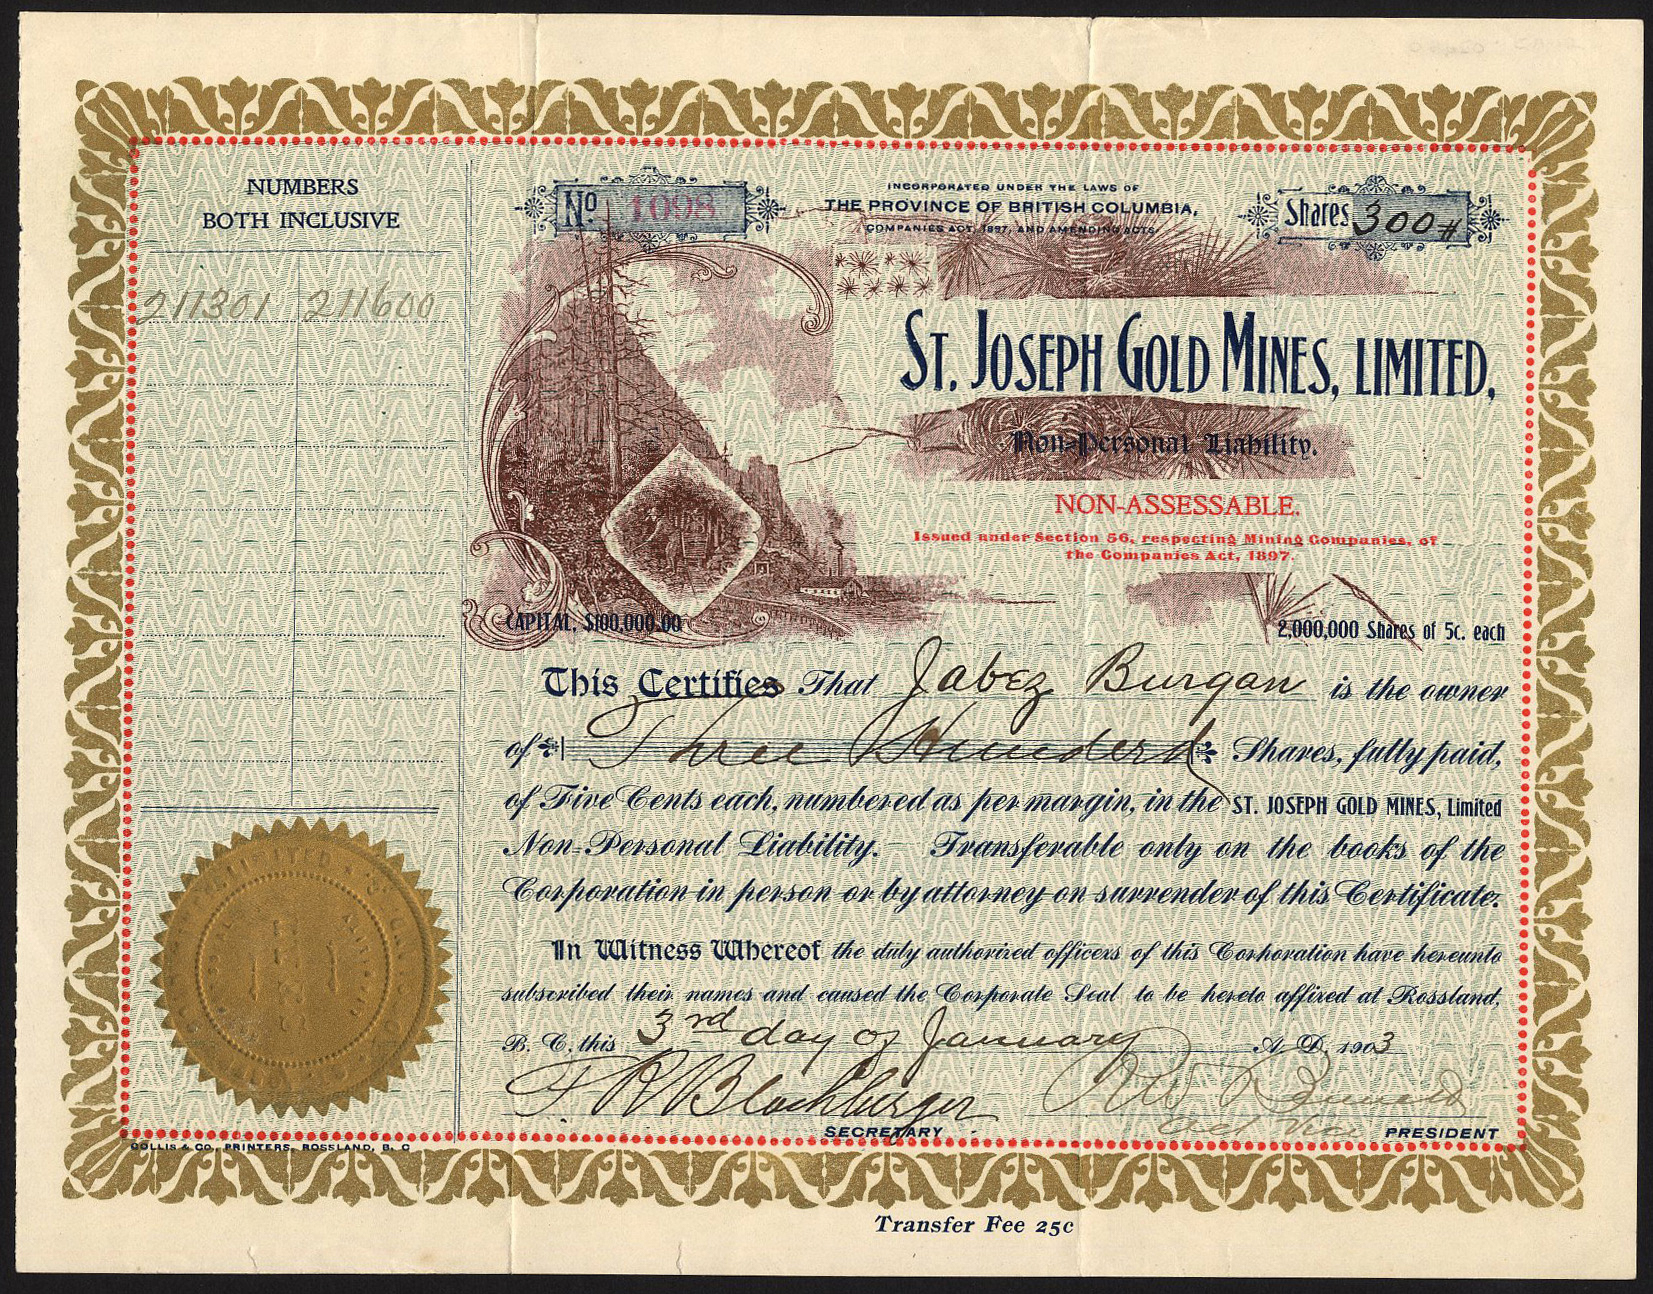 NUMBERS
BOTH INCLUSIVE
211301 211600
No 1098
INCORPORATED UNDER THE LAWS OF
THE PROVINCE OF BRITISH COLUMBIA,
COMPANIES ACT, 1897, AND AMENDING ACTS
Shares 300#
ST. JOSEPH GOLD MINES, LIMITED,
Non-Personal Liability.
NON-ASSESSABLE.
Issued under Section 56, respecting Mining Companies, of
the Companies Act, 1897.
CAPITAL, $100,000.00
2,000,000 Shares of 5c. each
This Certifies That Jabez Burgan is the owner
of Three Hunderd Shares, fully paid,
of Five Cents each, numbered as per margin, in the ST. JOSEPH GOLD MINES, Limited
Non-Personal Liability. Transferable only on the books of the
Corporation in person or by attorney on surrender of this Certificate.
In Witness Whereof the duly authorized officers of this Corporation have hereunto
subscribed their names and caused the Corporate Seal to be hereto affixed at Rossland,
B. C. this 3rd day of January A. D. 1903
F R Blochberger
SECRETARY
Vice PRESIDENT
COLLIS & CO., PRINTERS, ROSSLAND, B. C
Transfer Fee 25c